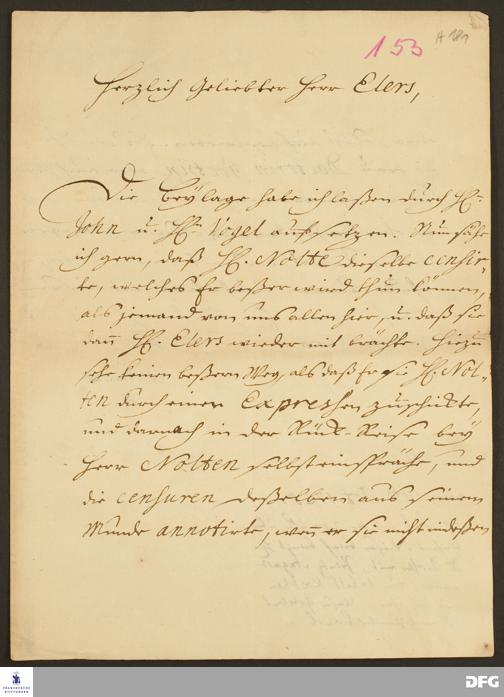 153
A 181
Herzlich Geliebter Herr Elers,
Die Beylage habe ich laßen durch H.
John u. H. Vogel aufsetzen. Nun sähe
ich gern, daß H. Nolte dieselbe censir-
te, welches Er beßer wird thun können,
als jemand von uns allen hier, u. daß sie
dann H. Elers wieder mit brächte. Hiezu
sehe keinen beßern Weg, als daß Er sie H. Nol-
ten durch einen Expressen zuschickte,
und darnach in der Rück-Reise bey
Herr Nolten selbst einspräche, und
die censuren deßelben aus seinem
Munde annotirte, wenn er sie nicht indeßen
FRANCKESCHE
STIFTUNGEN
DFG